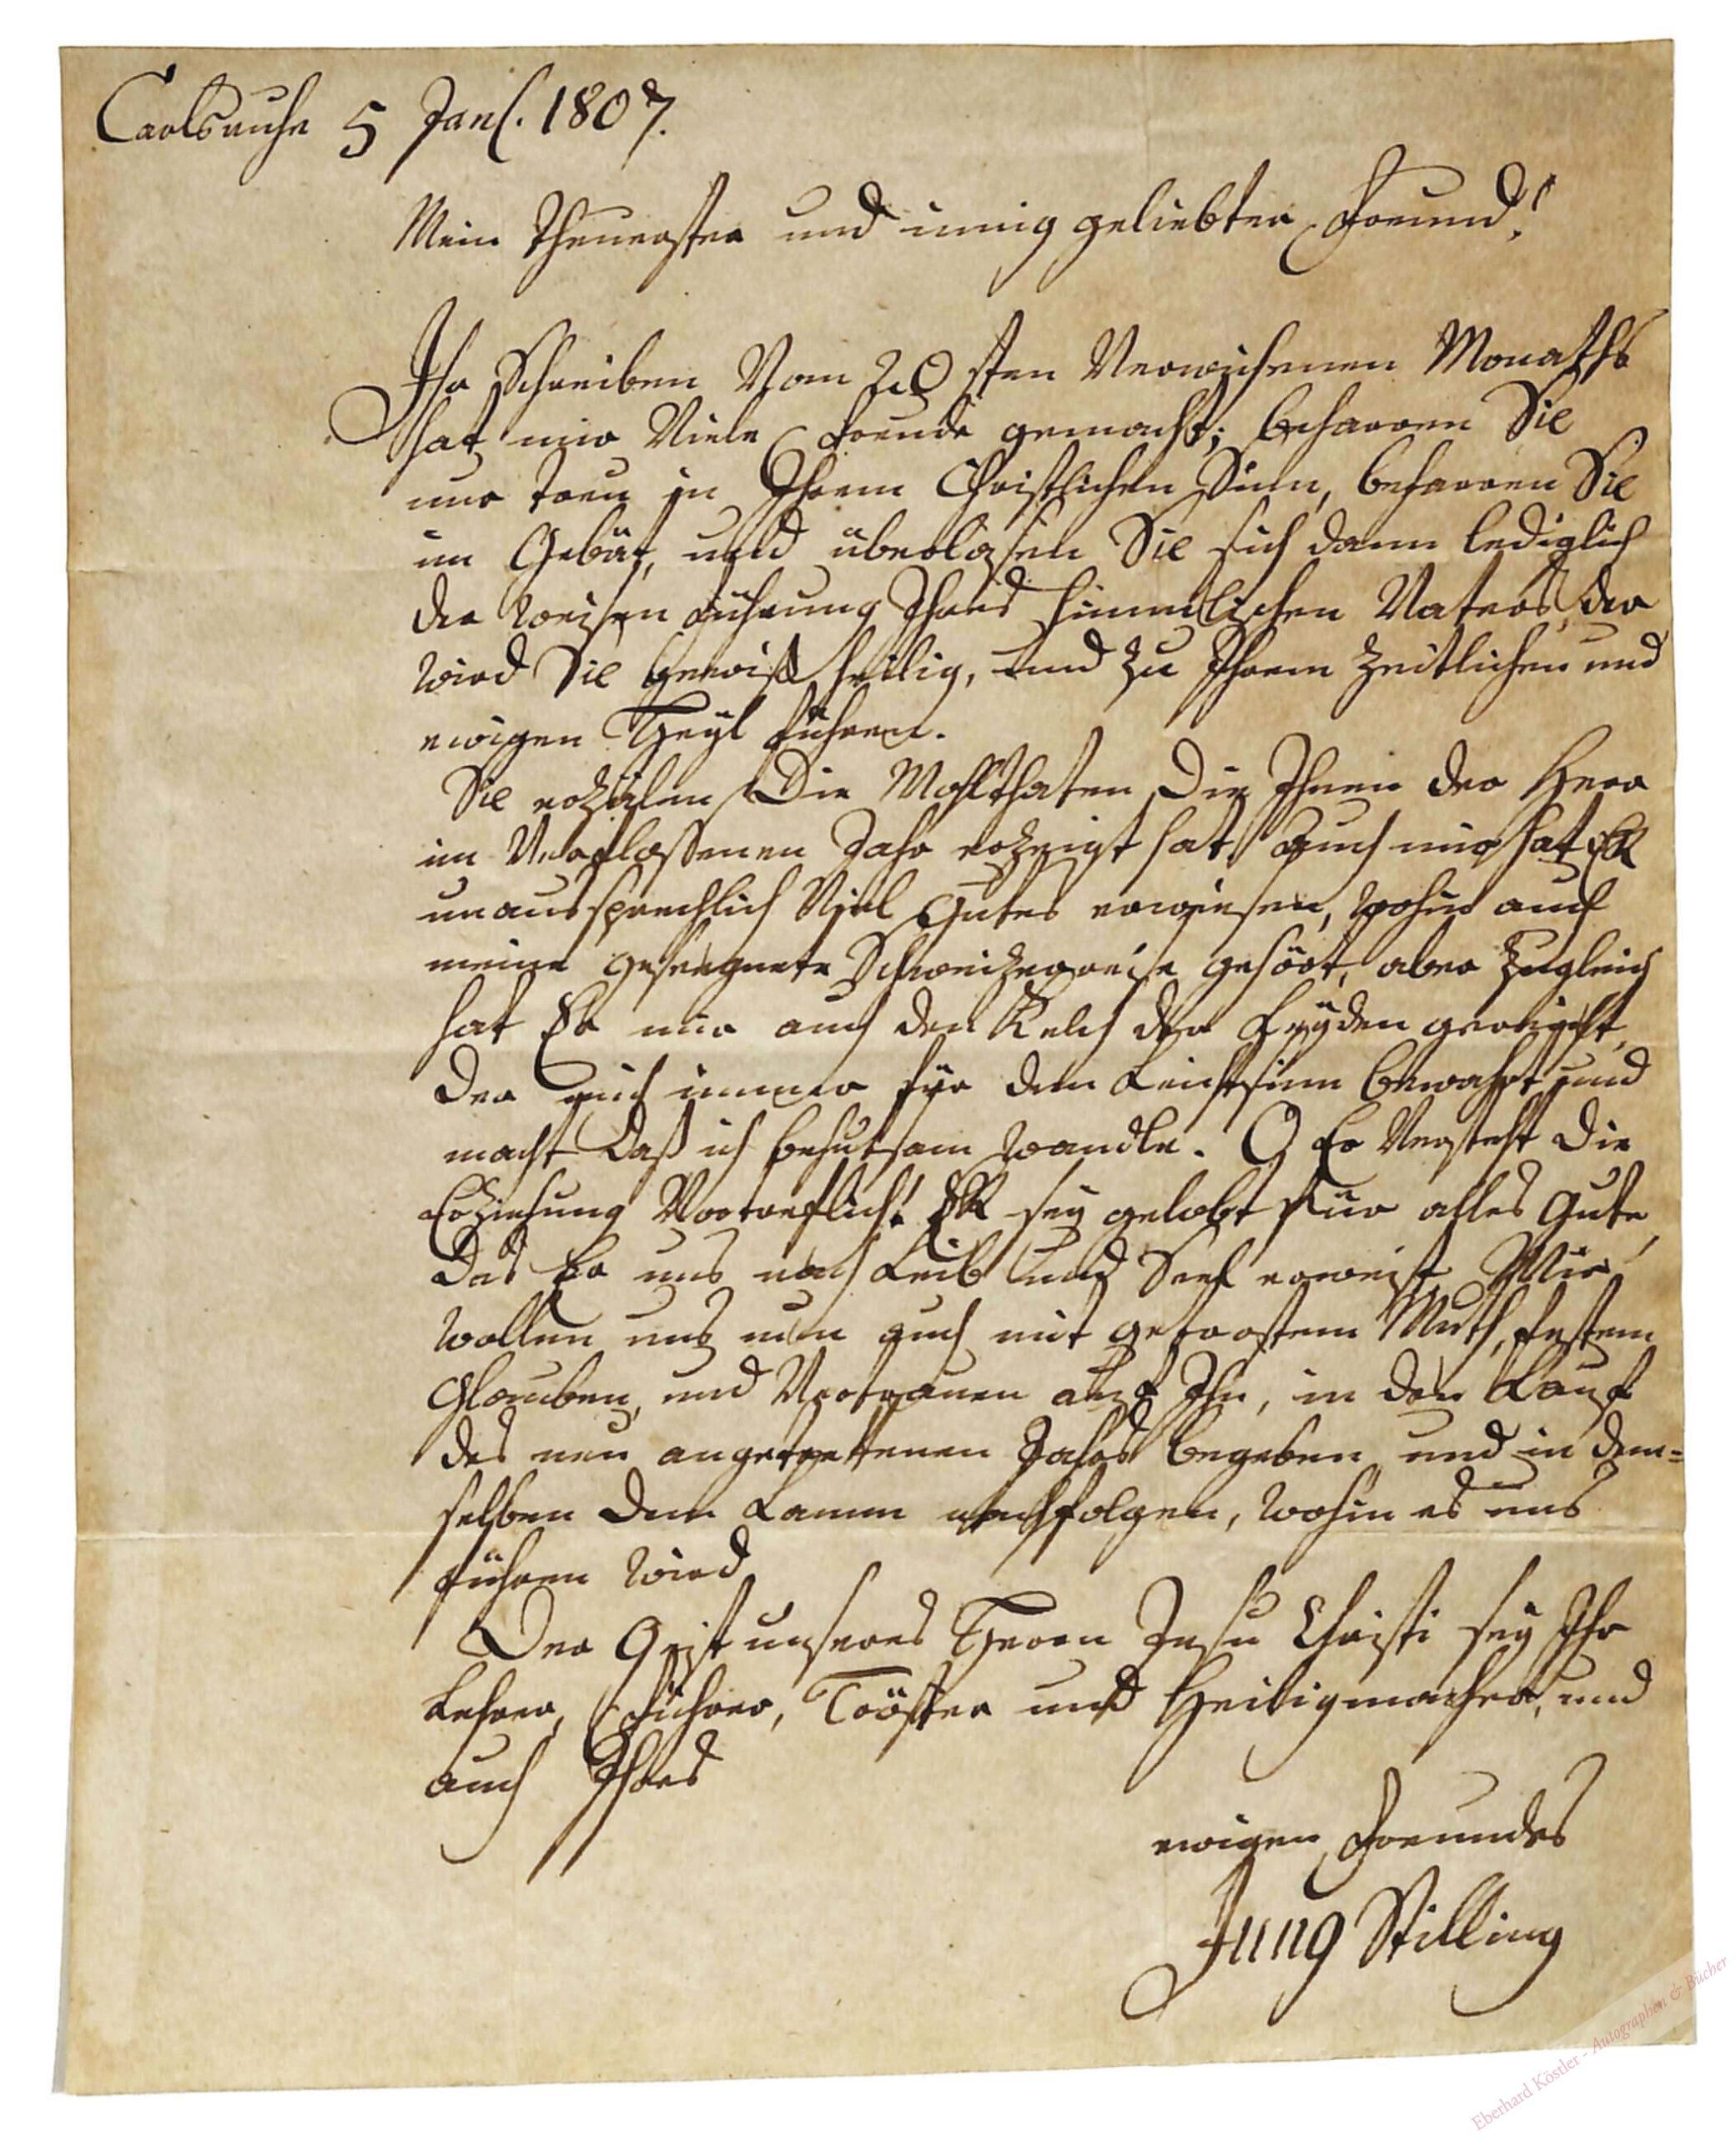 Carlsruhe 5 Jan. 1807.
Mein Theuerster und innig geliebter Freund!
Ihr Schreiben Vom 20sten Verwichenen Monaths
hat mir Viele Freude gemacht; beharren Sie
nur treu in Ihrem Christlichen Sinn, beharren Sie
im Gebät, und überlasen Sie sich dann lediglich
der Weisen Führung Ihres himmlischen Vaters, der
wird Sie gewiß heilig, und zu Ihrem Zeitlichen und
ewigen Heyl führen.
Sie erzälen Die Wohlthaten Die Ihnen der Herr
im Verfloßenen Jahr erzeigt hat, auch mir hat ER
unaussprechlich Viel Gutes erwiesen, wohin auch
meine geseegnete Schweizerreise gehört, aber Zugleich
hat Er mir auch den Kelch der Leyden gereicht,
Der mich immer für dem Leichtsinn bewahrt und
macht Daß ich behutsam wandle. O Er Versteht Die
Erziehung Vortreflich! ER sey gelobt für alles Gute,
Das Er uns nach Leib und Seel erweist, Wir
wollen uns nun auch mit getrostem Muth, festem
Glauben, und Vertrauen auf Ihn, in den Lauf
des neu angetrettenen Jahrs begeben und in dem=
selben Dem Lamm nachfolgen, wohin es uns
führen wird
Der Geist unseres Herrn Jesu Christi sey Ihr
Lehrer, Führer, Tröster und Heiligmacher, und
auch Ihres
ewigen Freundes
Jung Stilling
Eberhard Köstler - Autographen & Bücher